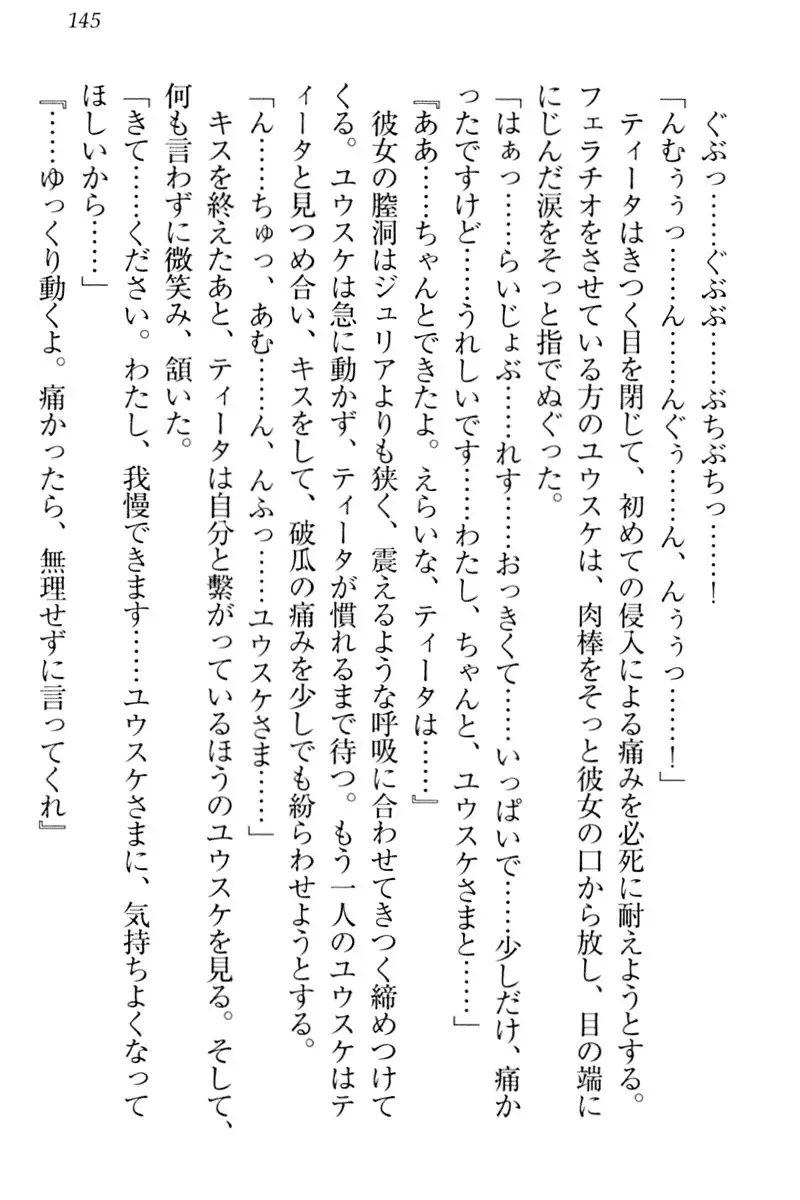 145
ぐぶっ……ぐぶぶ……ぶちぶちっ……！
「んむぅぅっ……ん……んぐぅ……ん、んぅぅっ……！」
ティータはきつく目を閉じて、初めての侵入による痛みを必死に耐えようとする。
フェラチオをさせている方のユウスケは、肉棒をそっと彼女の口から放し、目の端に
にじんだ涙をそっと指でぬぐった。
「はぁっ……らいじょぶ……れす……おっきくて……いっぱいで……少しだけ、痛か
ったですけど……うれしいです……わたし、ちゃんと、ユウスケさまと……」
『ああ……ちゃんとできたよ。えらいな、ティータは……』
彼女の膣洞はジュリアよりも狭く、震えるような呼吸に合わせてきつく締めつけて
くる。ユウスケは急に動かず、ティータが慣れるまで待つ。もう一人のユウスケはテ
ィータと見つめ合い、キスをして、破瓜の痛みを少しでも紛らわせようとする。
「ん……ちゅっ、あむ……ん、んふっ……ユウスケさま……」
キスを終えたあと、ティータは自分と繋がっているほうのユウスケを見る。そして、
何も言わずに微笑み、頷いた。
「きて……ください。わたし、我慢できます……ユウスケさまに、気持ちよくなって
ほしいから……」
『……ゆっくり動くよ。痛かったら、無理せずに言ってくれ』